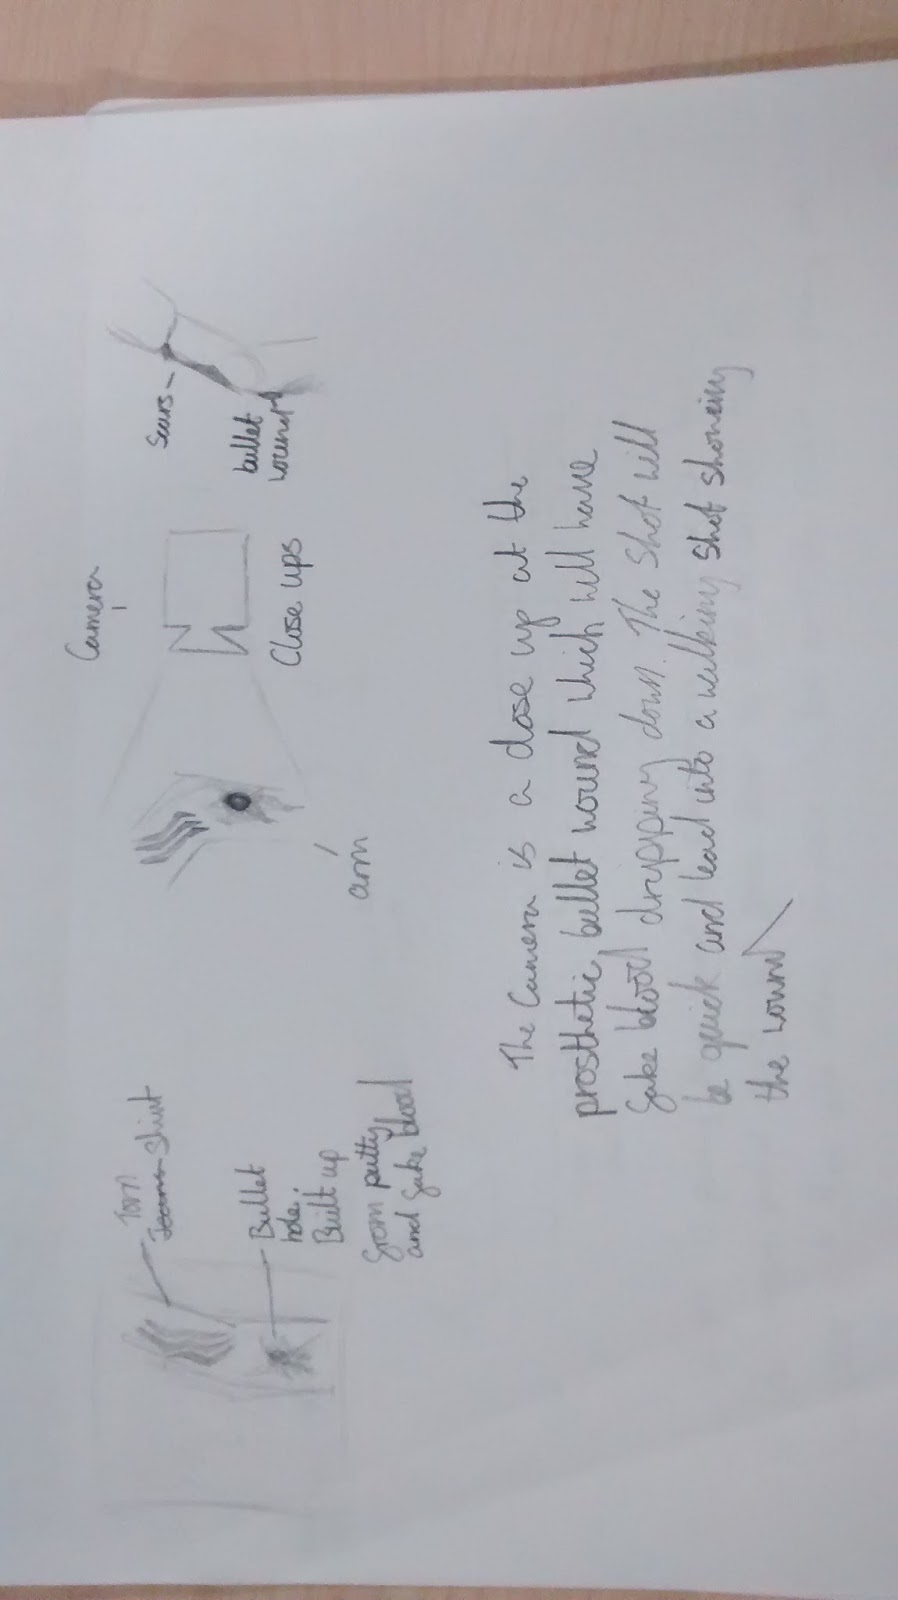 Torn
Shirt
Bullet
hole:
Built up
from putty
and fake blood
Camera
Close ups
arm
Scars
bullet
wound
The Camera is a close up at the
prosthetic bullet wound which will have
fake blood dripping down. The shot will
be quick and lead into a walking shot showing
the wound